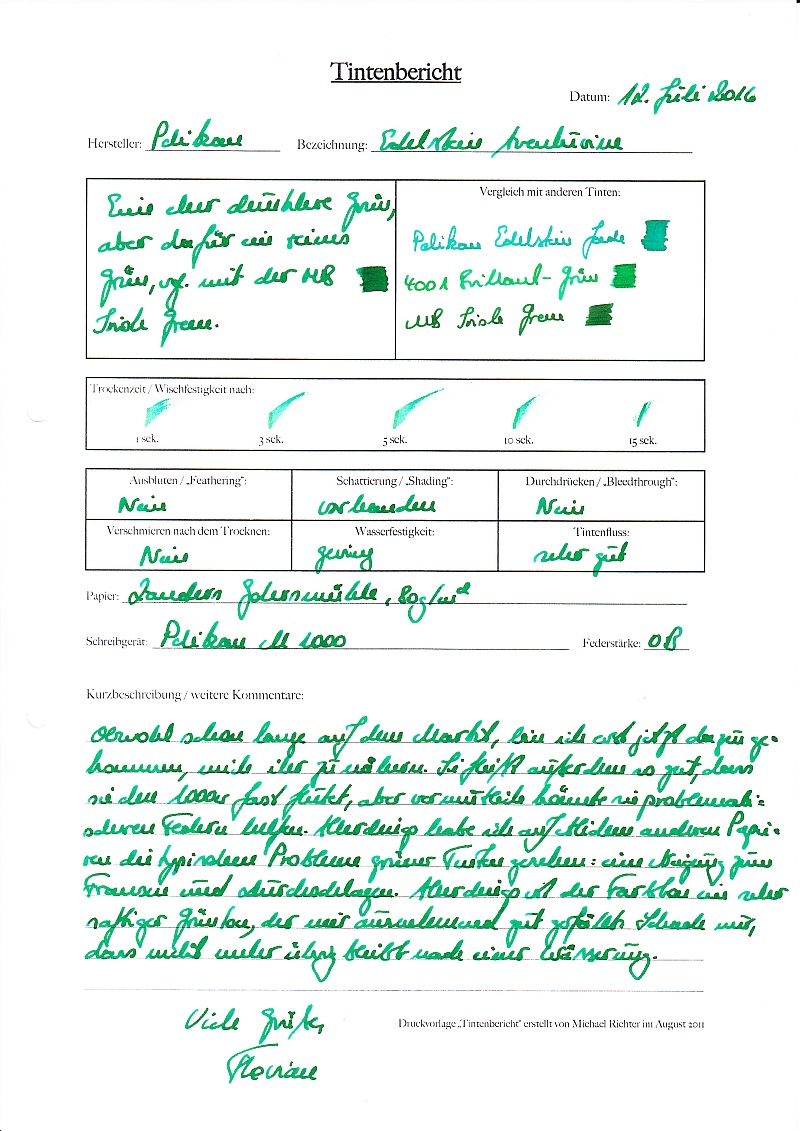 Tintenbericht
Datum: 12. Juli 2016
Hersteller: Pelikan Bezeichnung: Edelstein Aventurine
Eine der dunklere Grün,
aber dafür ein reines
Grün, vgl. mit der MB
Irish Green.
Vergleich mit anderen Tinten:
Pelikan Edelstein Jade
4001 Brillant-Grün
MB Irish Green
Trockenzeit / Wischfestigkeit nach:
1 sek. 3 sek. 5 sek. 10 sek. 15 sek.
Ausbluten / „Feathering“: Schattierung / „Shading“: Durchdrücken / „Bleedthrough“:
Nein vorhanden Nein
Verschmieren nach dem Trocknen: Wasserfestigkeit: Tintenfluss:
Nein gering sehr gut
Papier: Zanders Gohrsmühle, 80g/m²
Schreibgerät: Pelikan M 1000 Federstärke: OB
Kurzbeschreibung / weitere Kommentare:
Obwohl schon lange auf dem Markt, bin ich erst jetzt dazu ge-
kommen, mich ihr zu nähern. Sie fließt außerdem so gut, dass
sie den 1000er fast flutet, aber vermutlich könnte sie problemati-
scheren Federn helfen. Allerdings habe ich auf anderen Papie-
ren die typischen Probleme grüner Tinten gesehen: eine Neigung zum
Fransen und Durchschlagen. Allerdings ist der Farbton ein sehr
saftiger Grünton, der mir ausnehmend gut gefällt. Schade nur,
dass nicht mehr übrig bleibt nach einer Wässerung.
Viele Grüße,
Florian
Druckvorlage „Tintenbericht“ erstellt von Michael Richter im August 2011